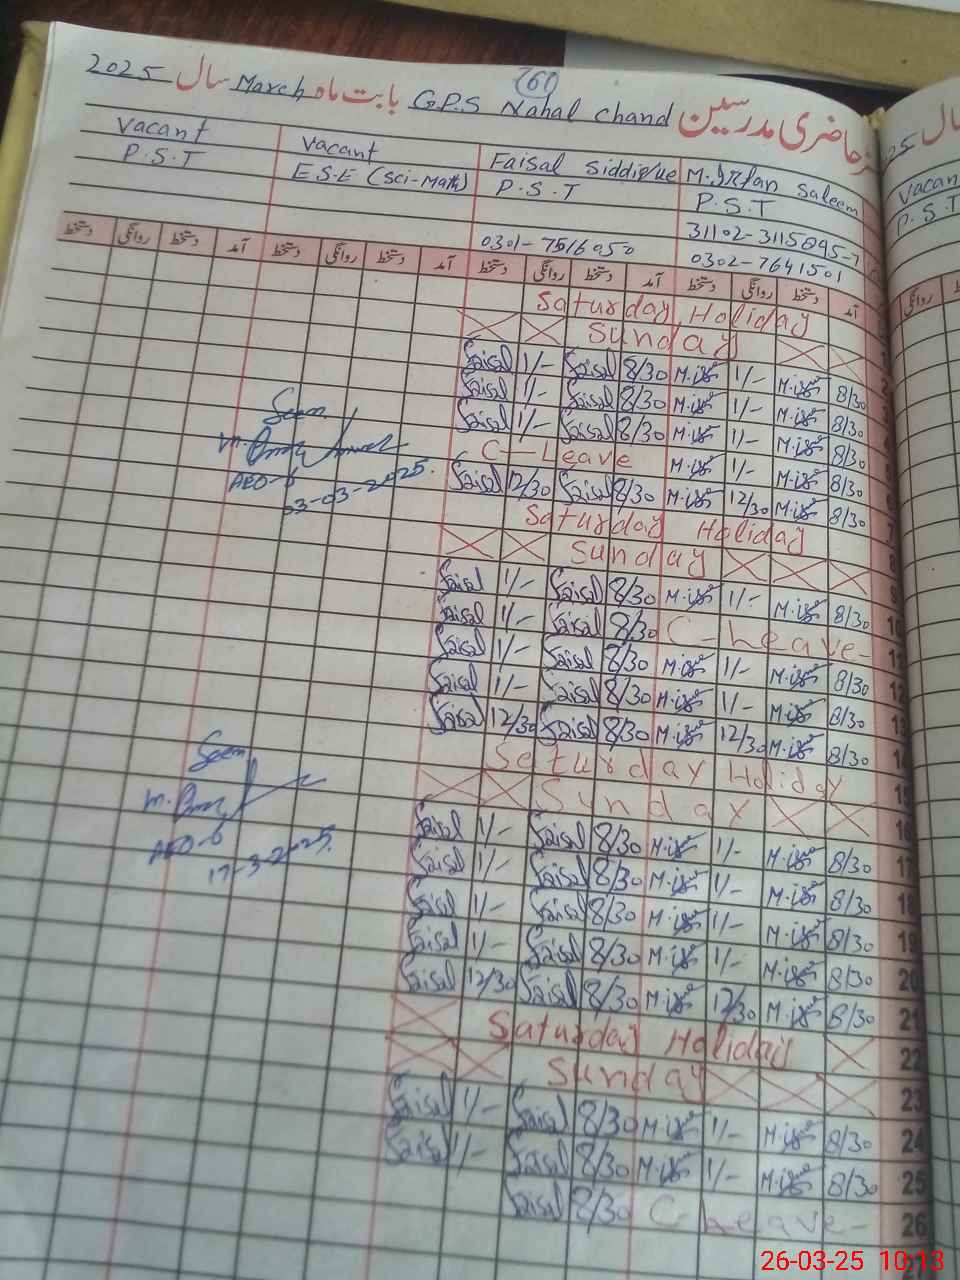 60
رحاضری مدرسین G.P.S Nahal Chand بابت ماہ March سال 2025
M. Irfan Saleem Faisal Siddique Vacant Vacant
P.S.T P.S.T E.S.E (Sci-Math) P.S.T
31102-3115895-7
0302-7641501 0301-7516050
آمد دستخط روانگی دستخط آمد دستخط روانگی دستخط آمد دستخط روانگی دستخط آمد دستخط روانگی دستخط
Saturday Holiday
Sunday
Faisal 1/- Faisal 8/30 M.عرفان 1/- M.عرفان 8/30
Faisal 1/- Faisal 8/30 M.عرفان 1/- M.عرفان 8/30
Faisal 1/- Faisal 8/30 M.عرفان 1/- M.عرفان 8/30
C-Leave M.عرفان 1/- M.عرفان 8/30
Faisal 12/30 Faisal 8/30 M.عرفان 12/30 M.عرفان 8/30 7
Saturday Holiday 8
Sunday 9
Faisal 1/- Faisal 8/30 M.عرفان 1/- M.عرفان 8/30 10
Faisal 1/- Faisal 8/30 C-Leave- 11
Faisal 1/- Faisal 8/30 M.عرفان 1/- M.عرفان 8/30 12
Faisal 1/- Faisal 8/30 M.عرفان 1/- M.عرفان 8/30 13
Faisal 12/30 Faisal 8/30 M.عرفان 12/30 M.عرفان 8/30 14
Seturday Holiday 15
Sunday 16
Faisal 1/- Faisal 8/30 M.عرفان 1/- M.عرفان 8/30 17
Faisal 1/- Faisal 8/30 M.عرفان 1/- M.عرفان 8/30 18
Faisal 1/- Faisal 8/30 M.عرفان 1/- M.عرفان 8/30 19
Faisal 1/- Faisal 8/30 M.عرفان 1/- M.عرفان 8/30 20
Faisal 12/30 Faisal 8/30 M.عرفان 12/30 M.عرفان 8/30 21
Saturday Holiday 22
Sunday 23
Faisal 1/- Faisal 8/30 M.عرفان 1/- M.عرفان 8/30 24
Faisal 1/- Faisal 8/30 M.عرفان 1/- M.عرفان 8/30 25
Faisal 8/30 C-Leave- 26
Seen
AEO-6
03-03-2025.
Seen
AEO-6
17-3-2025.
سال
2025
Vacan
P.S.T
روانگی
26-03-25 10:13